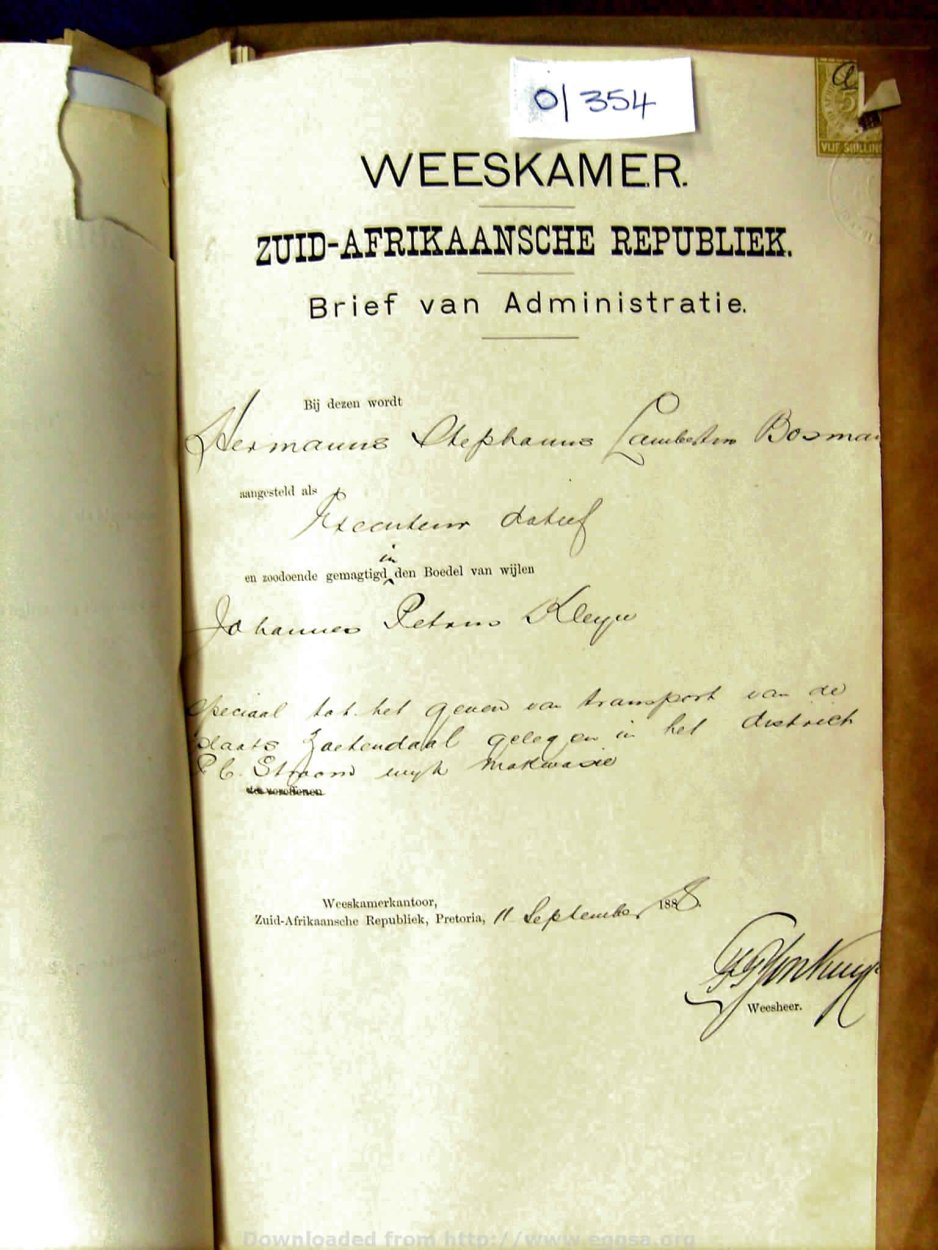 0/354
VIJF SHILLING
WEESKAMER.
ZUID-AFRIKAANSCHE REPUBLIEK.
Brief van Administratie.
Bij dezen wordt
Hermanus Stephanus Lambertus Bosman
aangesteld als
Executeur datief
in
en zoodoende gemagtigd den Boedel van wijlen
Johannes Petrus Kleyn
speciaal tot het geven van transport van de
plaats Zoetendaal gelegen in het district
P C. Stroom wyk Makwasie
Weeskamerkantoor,
Zuid-Afrikaansche Republiek, Pretoria, 11 September 1888.
Weesheer.
Downloaded from http://www.eggsa.org